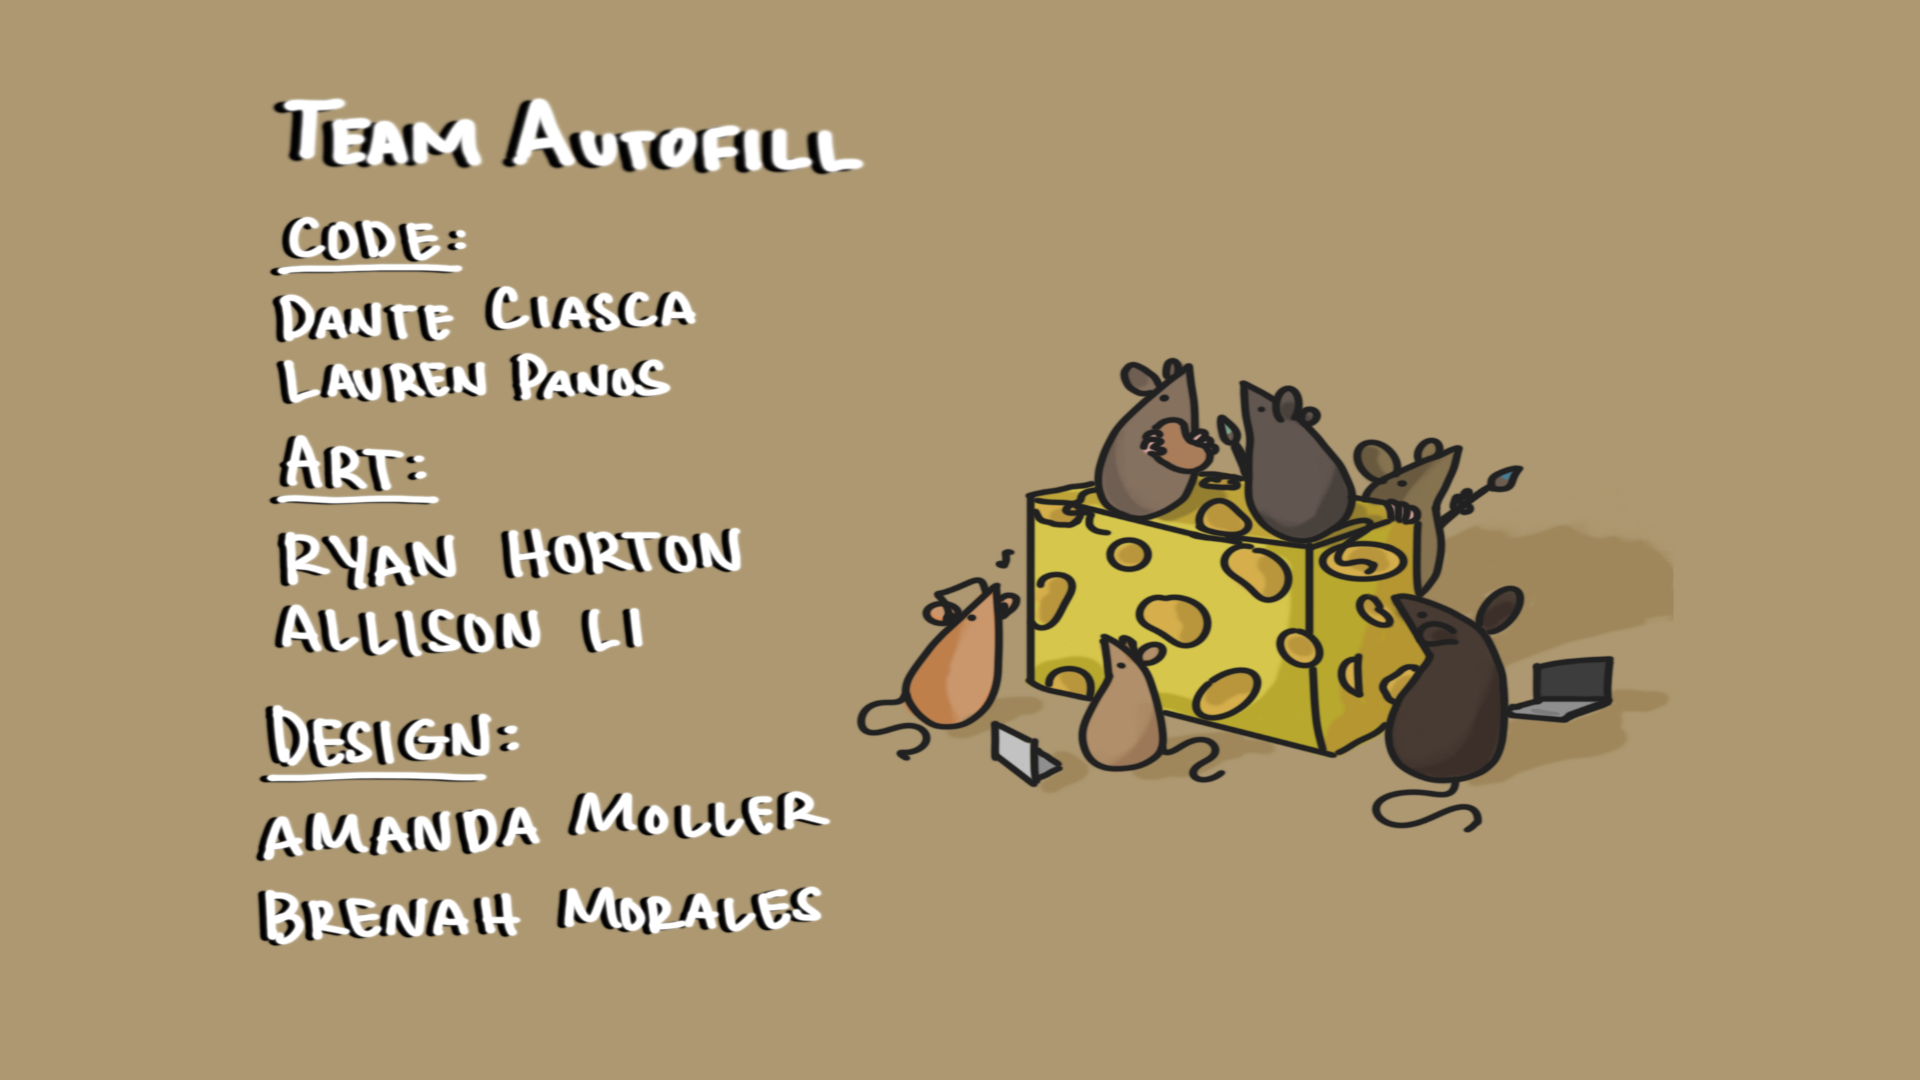 TEAM AUTOFILL
CODE:
DANTE CIASCA
LAUREN PANOS
ART:
RYAN HORTON
ALLISON LI
DESIGN:
AMANDA MOLLER
BRENAH MORALES